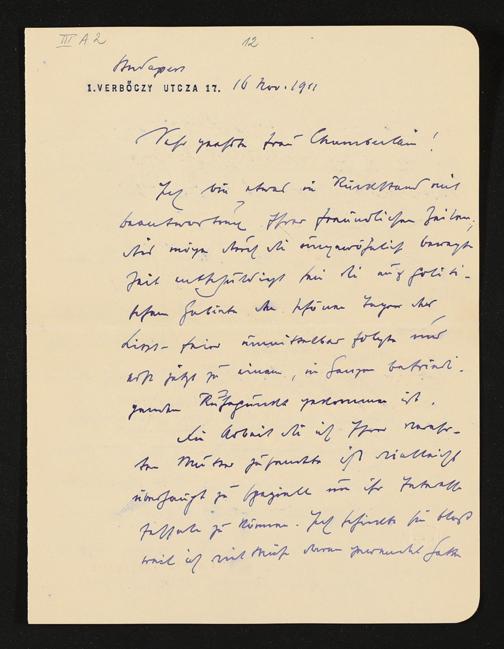 III A 2
12
Budapest
1. VERBŐCZY UTCZA 17. 16 Nov. 1911
Sehr geehrte Frau Chamberlain!
Ich bin etwas in Rückstand mit
Beantwortung Ihrer freundlichen Zeilen,
dies möge durch die ungewöhnlich bewegte
Zeit entschuldigt sein die auf politi-
schem Gebiete den schönen Tagen der
Liszt-feier unmittelbar folgte und
erst jetzt zu einem, im Ganzen befriedi-
genden Ruhepunkt gekommen ist.
Die Arbeit die ich Ihrer verehr-
ten Mutter zusandte ist vielleicht
überhaupt zu speziell um ihr Interesse
fesseln zu können. Ich schickte sie bloß
weil ich viel Mühe daran gewandt hatte